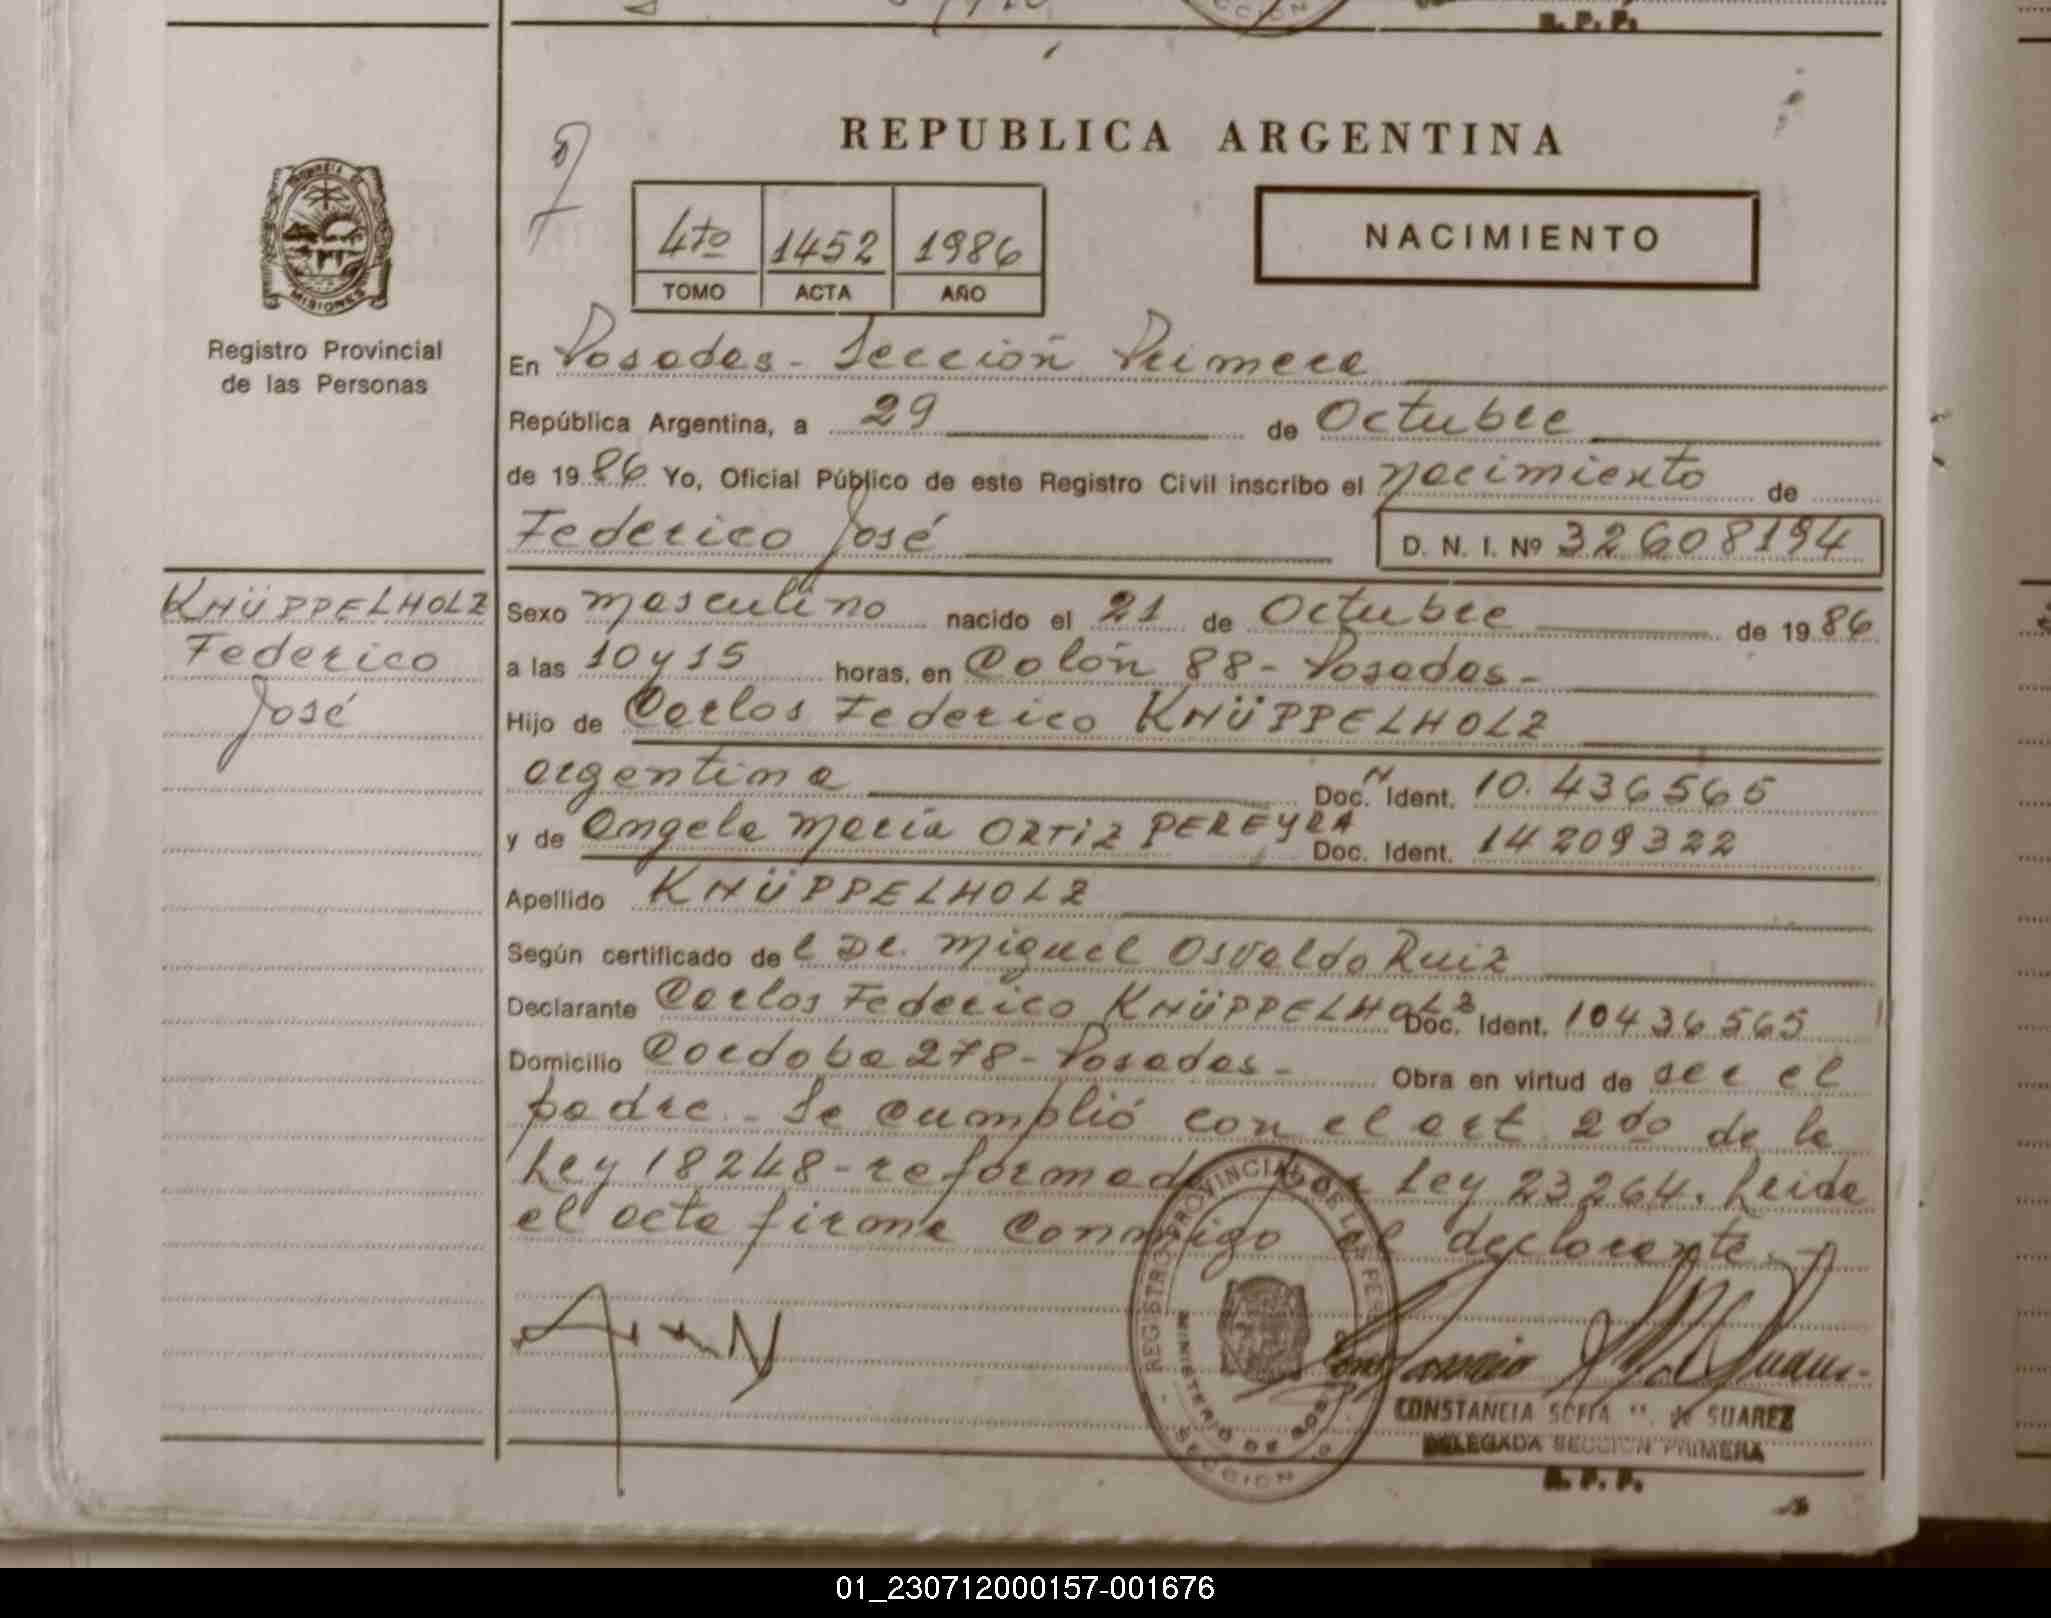 REPUBLICA ARGENTINA
4to 1452 1986
TOMO ACTA AÑO
NACIMIENTO
MISIONES
Registro Provincial
de las Personas
En Posadas - Sección Primera
República Argentina, a 29 de Octubre
de 1986 Yo, Oficial Público de este Registro Civil inscribo el nacimiento de
Federico José D. N. I. Nº 32608194
KNÜPPELHOLZ
Federico
José
Sexo masculino nacido el 21 de Octubre de 1986
a las 10 y 15 horas, en Colón 88 - Posadas -
Hijo de Carlos Federico KNÜPPELHOLZ
argentina Doc. Ident. 10.436565
y de Angela María ORTIZ PEREYRA Doc. Ident. 14209322
Apellido KNÜPPELHOLZ
Según certificado de l Dr. Miguel Osvaldo Ruiz
Declarante Carlos Federico KNÜPPELHOLZ Doc. Ident. 10436565
Domicilio Cordoba 278 - Posadas - Obra en virtud de ser el
padre - Se cumplió con el art 2do de la
Ley 18248 - reformada por Ley 23264. Leida
el acta firma conmigo el declarante. -
REGISTRO PROVINCIAL DE LAS PERS
MINISTERIO DE GOBIERNO
SECCION
CONSTANCIA SOFIA de SUAREZ
DELEGADA SECCION PRIMERA
R. P. P.
01_230712000157-001676